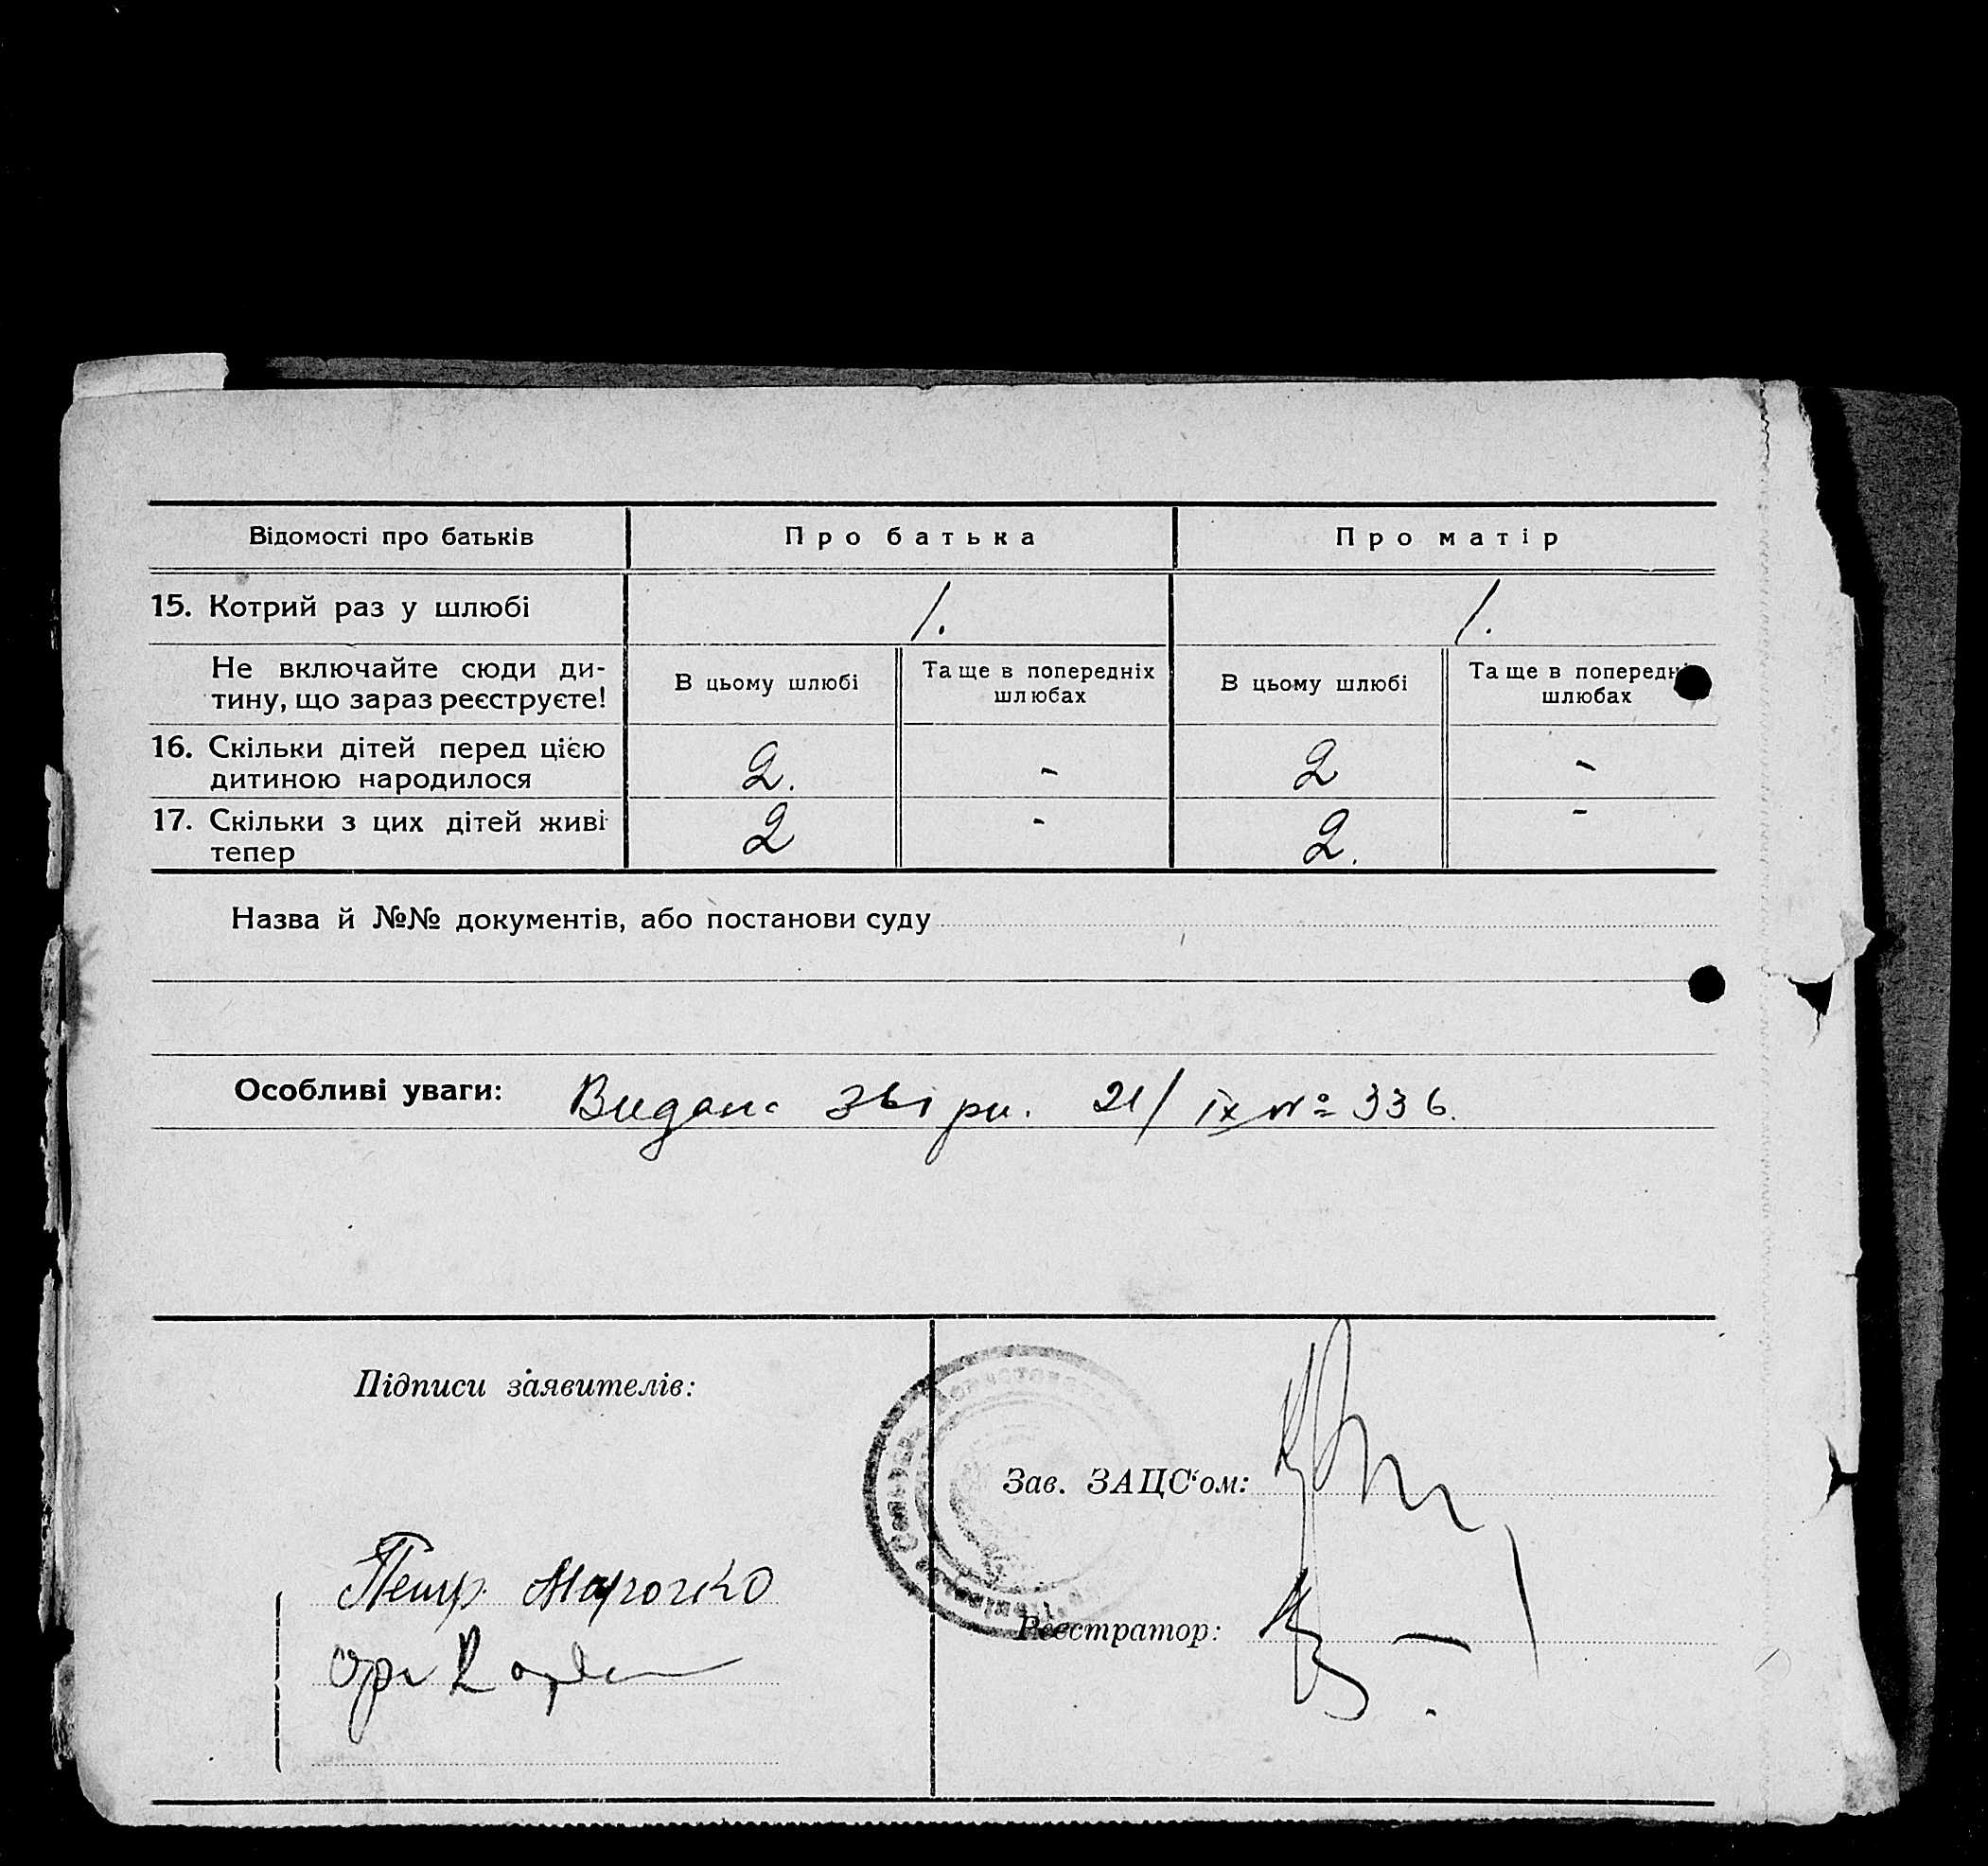 Відомості про батьків
Про батька
Про матір
15. Котрий раз у шлюбі
1.
1.
Не включайте сюди ди-
тину, що зараз реєструєте!
В цьому шлюбі
Та ще в попередніх
шлюбах
В цьому шлюбі
Та ще в попередн
шлюбах
16. Скільки дітей перед цією
дитиною народилося
2.
-
2
-
17. Скільки з цих дітей живі
тепер
2
-
2.
-
Назва й №№ документів, або постанови суду
Особливі уваги: Видана 21/IX № 336.
Підписи заявителів:
Зав. ЗАЦС‘ом:
Петр Марочко
Реєстратор: